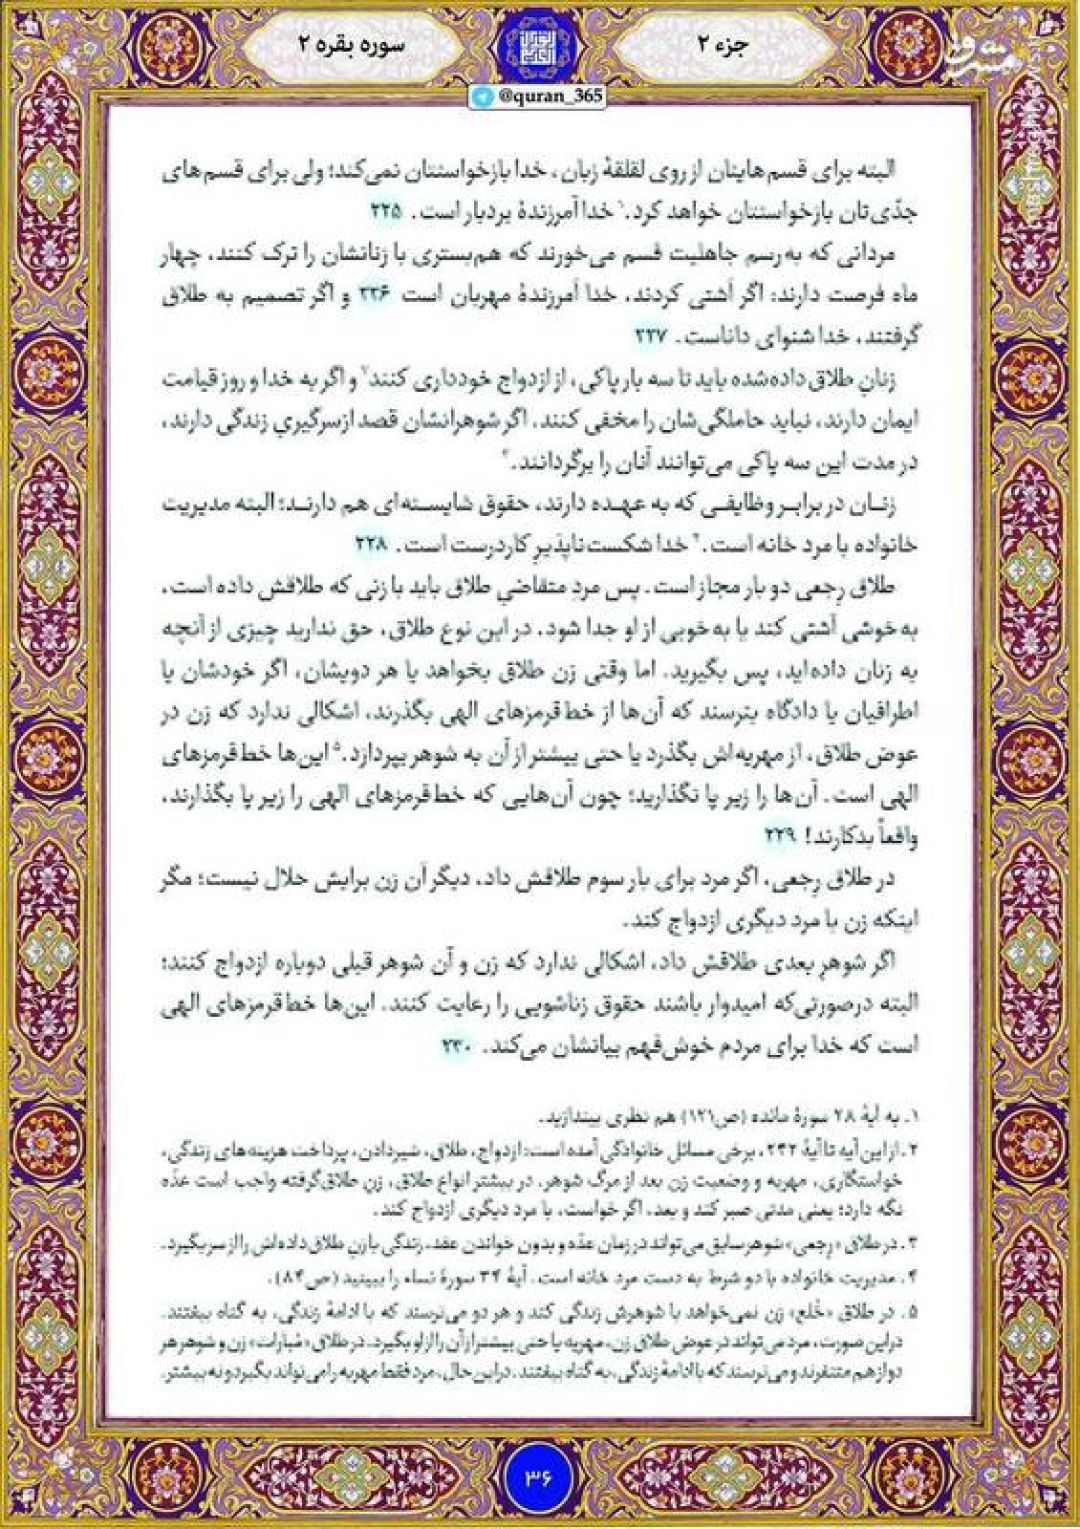 جزء ۲
سوره بقره ۲
@quran_365
البته برای قسم‌هایتان از روی لقلقهٔ زبان، خدا بازخواستتان نمی‌کند؛ ولی برای قسم‌های
جدّی‌تان بازخواستتان خواهد کرد.۱ خدا آمرزندهٔ بردبار است. ۲۲۵
مردانی که به‌رسم جاهلیت قسم می‌خورند که هم‌بستری با زنانشان را ترک کنند، چهار
ماه فرصت دارند: اگر آشتی کردند، خدا آمرزندهٔ مهربان است ۲۲۶ و اگر تصمیم به طلاق
گرفتند، خدا شنوای داناست. ۲۲۷
زنانِ طلاق داده‌شده باید تا سه بار پاکی، از ازدواج خودداری کنند۲ و اگر به خدا و روز قیامت
ایمان دارند، نباید حاملگی‌شان را مخفی کنند. اگر شوهرانشان قصد ازسرگیریِ زندگی دارند،
در مدت این سه پاکی می‌توانند آنان را برگردانند.۳
زنان در برابر وظایفی که به عهده دارند، حقوق شایسته‌ای هم دارند؛ البته مدیریت
خانواده با مرد خانه است.۴ خدا شکست‌ناپذیرِ کاردرست است. ۲۲۸
طلاق رِجعی دو بار مجاز است. پس مردِ متقاضیِ طلاق باید با زنی که طلاقش داده است،
به‌خوشی آشتی کند یا به‌خوبی از او جدا شود. در این نوع طلاق، حق ندارید چیزی از آنچه
به زنان داده‌اید، پس بگیرید. اما وقتی زن طلاق بخواهد یا هر دویشان، اگر خودشان یا
اطرافیان یا دادگاه بترسند که آن‌ها از خط‌قرمزهای الهی بگذرند، اشکالی ندارد که زن در
عوض طلاق، از مهریه‌اش بگذرد یا حتی بیشتر از آن به شوهر بپردازد.۵ این‌ها خط‌قرمزهای
الهی است. آن‌ها را زیر پا نگذارید؛ چون آن‌هایی که خط‌قرمزهای الهی را زیر پا بگذارند،
واقعاً بدکارند! ۲۲۹
در طلاق رِجعی، اگر مرد برای بار سوم طلاقش داد، دیگر آن زن برایش حلال نیست؛ مگر
اینکه زن با مرد دیگری ازدواج کند.
اگر شوهرِ بعدی طلاقش داد، اشکالی ندارد که زن و آن شوهر قبلی دوباره ازدواج کنند؛
البته درصورتی‌که امیدوار باشند حقوق زناشویی را رعایت کنند. این‌ها خط‌قرمزهای الهی
است که خدا برای مردم خوش‌فهم بیانشان می‌کند. ۲۳۰
۱. به آیهٔ ۲۸ سورهٔ مائده (ص۱۲۱) هم نظری بیندازید.
۲. از این آیه تا آیهٔ ۲۴۲، برخی مسائل خانوادگی آمده است: ازدواج، طلاق، شیردادن، پرداخت هزینه‌های زندگی،
خواستگاری، مهریه و وضعیت زن بعد از مرگ شوهر. در بیشتر انواع طلاق، زنِ طلاق‌گرفته واجب است عدّه
نگه دارد؛ یعنی مدتی صبر کند و بعد، اگر خواست، با مرد دیگری ازدواج کند.
۳. در طلاق «رِجعی» شوهر سابق می‌تواند در زمان عدّه و بدون خواندن عقد، زندگی با زن طلاق‌داده‌اش را از سر بگیرد.
۴. مدیریت خانواده با دو شرط به دست مرد خانه است. آیهٔ ۳۴ سورهٔ نساء را ببینید (ص۸۴).
۵. در طلاق «خُلع» زن نمی‌خواهد با شوهرش زندگی کند و هر دو می‌ترسند که با ادامهٔ زندگی، به گناه بیفتند.
دراین صورت، مرد می‌تواند در عوض طلاق زن، مهریه یا حتی بیشتر از آن را از او بگیرد. در طلاق «مُبارات» زن و شوهر هر
دو از هم متنفرند و می‌ترسند که با ادامهٔ زندگی، به گناه بیفتند. دراین حال، مرد فقط مهریه را می‌تواند بگیرد و نه بیشتر.
۳۶